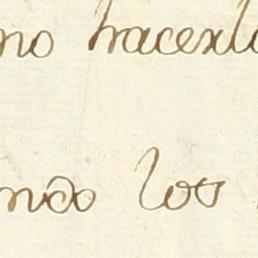 no hacerlo
ndo los